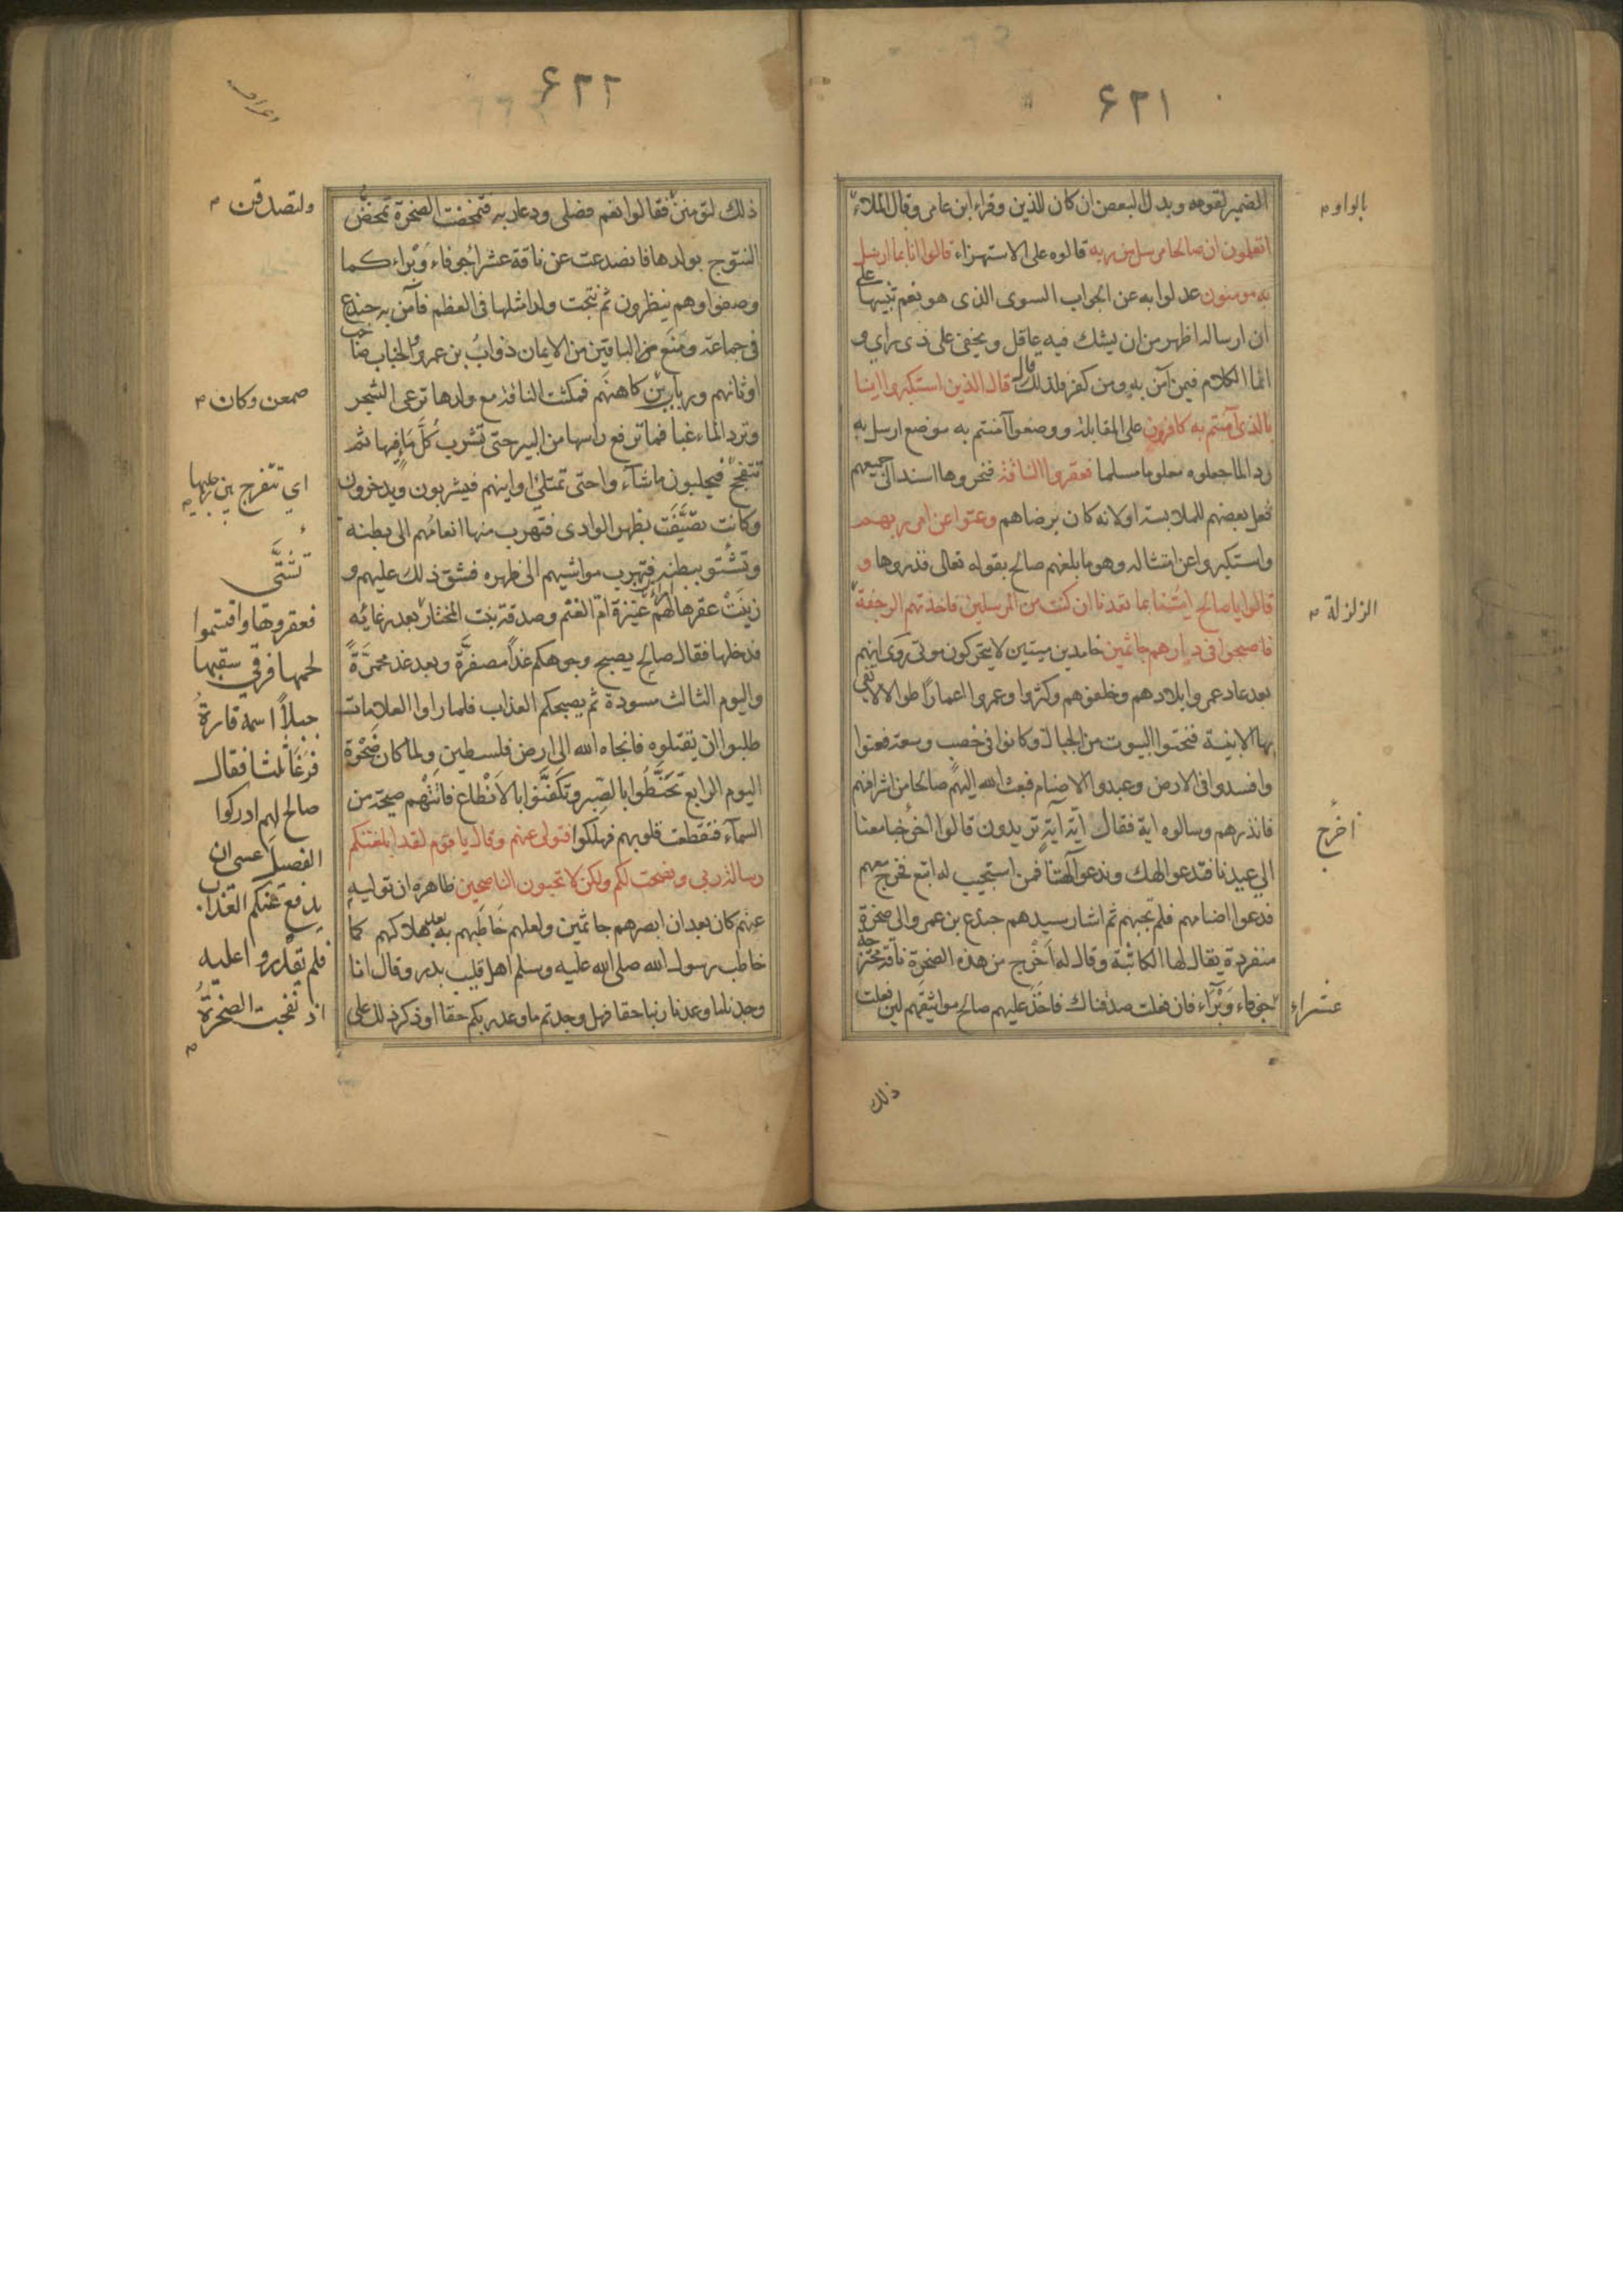 ۶۲۱
الضمير لقومه وبدل البعض ان كان للذين وقراء ابن عامر وقال الملاء
بالواو
اتعلمون ان صالحا مرسل من ربه قالوه على الاستهزاء قالوا انا بما ارسل
به مومنون عدلوا به عن الجواب السوى الذى هو نعم تنبيها على
ان ارساله اظهر من ان يشك فيه عاقل ويخفى على ذى راى و
انما الكلام فيمن آمن به ومن كفر فلذلك قال قال الذين استكبروا انا
بالذى آمنتم به كافرون على المقابلة ووضعوا آمنتم به موضع ارسل به
رد الما جعلوه معلوما مسلما فعقروا الناقة فنحروها اسند الى جميعهم
فعل بعضهم للملابسة او لانه كان برضاهم وعتوا عن امر ربهم
واستكبروا عن امتثاله وهو ما بلغهم صالح بقوله تعالى فذروها و
قالوا يا صالح ايتنا بما تعدنا ان كنت من المرسلين فاخذتهم الرجفة
الزلزلة
فاصبحوا فى دارهم جاثمين خامدين ميتين لا يتحركون موتى روى انهم
بعد عاد عمروا بلادهم وخلفوهم وكثروا وعمروا اعمارا طوالا لا تفى
بها الابنية فنحتوا البيوت من الجبال وكانوا فى خصب وسعة فعتوا
وافسدوا فى الارض وعبدوا الاصنام فبعث الله اليهم صالحا من اشرافهم
فانذرهم وسالوه اية فقال اية آية تريدون قالوا اخرج معنا
اخرج
الى عيدنا فتدعو الهك وندعو آلهتنا فمن استجيب له اتبع فخرج معهم
فدعوا اصنامهم فلم تجبهم ثم اشار سيدهم جندع بن عمرو الى صخرة
منفردة يقال لها الكاثبة وقال له اخرج من هذه الصخرة ناقة مخترجة
جوفاء وبراء فان فعلت صدقناك فاخذ عليهم صالح مواثيقهم لين فعلت
عشراء
ذلك
۶۲۲
اعراف
ذلك لتومنن فقالوا نعم فصلى ودعا ربه فتمخضت الصخرة تمخض
ولتصدقن
النتوج بولدها فانصدعت عن ناقة عشراء جوفاء وبراء كما
وصفوا وهم ينظرون ثم نتجت ولدا مثلها فى العظم فآمن به جندع
فى جماعة ومنع من الباقين من الايمان ذواب بن عمرو والحباب صاحب
اوثانهم ورباب بن كاهنهم فمكثت الناقة مع ولدها ترعى الشجر
صمعن وكان
وترد الماء غبا فما ترفع راسها من البير حتى تشرب كل ما فيها ثم
تتفحج فيحلبون ما شآء واحتى تمتلئ اوانيهم فيشربون ويدخرون
اى تنفرج بين رجليها
وكانت تصيفت بظهر الوادى فتهرب منها انعامهم الى بطنه
وتشتو ببطنه فتهرب مواشيهم الى ظهره فشق ذلك عليهم و
تشتى
زينت عقرها لهم عنيزة ام الغنم وصدقة بنت المختار بعد رغائه
فدخلها فقال صالح يصبح وجوهكم غدا مصفرة وبعد غد محمرة
واليوم الثالث مسودة ثم يصبحكم العذاب فلما راوا العلامات
طلبوا ان يقتلوه فانجاه الله الى ارض فلسطين ولما كان ضحوة
اليوم الرابع تحنطوا بالصبر وتكفنوا بالانطاع فاتتهم صيحة من
السمآء فتقطعت قلوبهم فهلكوا فتولى عنهم وقال يا قوم لقد ابلغتكم
رسالة ربى ونصحت لكم ولكن لا تحبون الناصحين ظاهره ان توليه
عنهم كان بعد ان ابصرهم جاثمين ولعلهم خاطبهم به بعد هلاكهم كما
خاطب رسول الله صلى الله عليه وسلم اهل قليب بدر وقال انا
وجدنا ما وعدنا ربنا حقا فهل وجدتم ما وعد ربكم حقا او ذكر ذلك على
فعقروها واقتسموا
لحمها فرقى سقبها
جبلا اسمه قارة
فرغا ثلثا فقال
صالح لهم ادركوا
الفصيل عسى ان
يدفع عنكم العذاب
فلم يقدروا عليه
اذ انفجت الصخرة